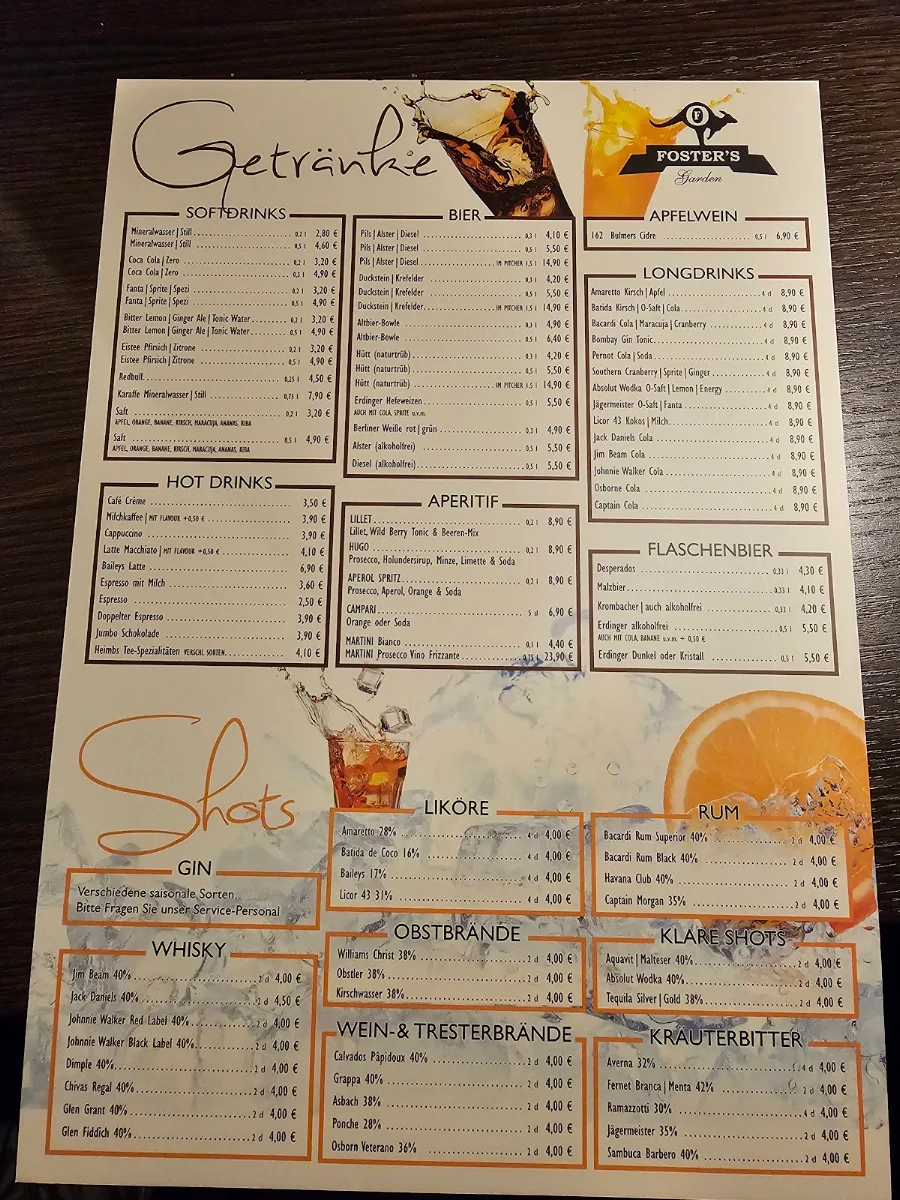 Getränke
FOSTER'S
Garden
SOFTDRINKS
Mineralwasser | Still 0,2 l 2,80 €
Mineralwasser | Still 0,5 l 4,60 €
Coca Cola | Zero 0,2 l 3,20 €
Coca Cola | Zero 0,5 l 4,90 €
Fanta | Sprite | Spezi 0,2 l 3,20 €
Fanta | Sprite | Spezi 0,5 l 4,90 €
Bitter Lemon | Ginger Ale | Tonic Water 0,2 l 3,20 €
Bitter Lemon | Ginger Ale | Tonic Water 0,5 l 4,90 €
Eistee Pfirsich | Zitrone 0,2 l 3,20 €
Eistee Pfirsich | Zitrone 0,5 l 4,90 €
Redbull 0,25 l 4,50 €
Karaffe Mineralwasser | Still 0,75 l 7,90 €
Saft 0,2 l 3,20 €
APFEL, ORANGE, BANANE, KIRSCH, MARACUJA, ANANAS, KIBA
Saft 0,5 l 4,90 €
APFEL, ORANGE, BANANE, KIRSCH, MARACUJA, ANANAS, KIBA
HOT DRINKS
Café Crème 3,50 €
Milchkaffee | MIT FLAVOUR +0,50 € 3,90 €
Cappuccino 3,90 €
Latte Macchiato | MIT FLAVOUR +0,50 € 4,10 €
Baileys Latte 6,90 €
Espresso mit Milch 3,60 €
Espresso 2,50 €
Doppelter Espresso 3,90 €
Jumbo Schokolade 3,90 €
Heimbs Tee-Spezialitäten VERSCHL. SORTEN 4,10 €
BIER
Pils | Alster | Diesel 0,3 l 4,10 €
Pils | Alster | Diesel 0,5 l 5,50 €
Pils | Alster | Diesel IM PITCHER 1,5 l 14,90 €
Duckstein | Krefelder 0,3 l 4,20 €
Duckstein | Krefelder 0,5 l 5,50 €
Duckstein | Krefelder IM PITCHER 1,5 l 14,90 €
Altbier-Bowle 0,3 l 4,90 €
Altbier-Bowle 0,5 l 6,40 €
Hütt (naturtrüb) 0,3 l 4,20 €
Hütt (naturtrüb) 0,5 l 5,50 €
Hütt (naturtrüb) IM PITCHER 1,5 l 14,90 €
Erdinger Hefeweizen 0,5 l 5,50 €
AUCH MIT COLA, SPRITE u.v.m.
Berliner Weiße rot | grün 0,3 l 4,90 €
Alster (alkoholfrei) 0,5 l 5,50 €
Diesel (alkoholfrei) 0,5 l 5,50 €
APERITIF
LILLET 0,2 l 8,90 €
Lillet, Wild Berry Tonic & Beeren-Mix
HUGO 0,2 l 8,90 €
Prosecco, Holundersirup, Minze, Limette & Soda
APEROL SPRITZ 0,2 l 8,90 €
Prosecco, Aperol, Orange & Soda
CAMPARI 5 cl 6,90 €
Orange oder Soda
MARTINI Bianco 0,1 l 4,40 €
MARTINI Prosecco Vino Frizzante 0,75 l 23,90 €
APFELWEIN
162 Bulmers Cidre 0,5 l 6,90 €
LONGDRINKS
Amaretto Kirsch | Apfel 4 cl 8,90 €
Batida Kirsch | O-Saft | Cola 4 cl 8,90 €
Bacardi Cola | Maracuja | Cranberry 4 cl 8,90 €
Bombay Gin Tonic 4 cl 8,90 €
Pernot Cola | Soda 4 cl 8,90 €
Southern Cranberry | Sprite | Ginger 4 cl 8,90 €
Absolut Wodka O-Saft | Lemon | Energy 4 cl 8,90 €
Jägermeister O-Saft | Fanta 4 cl 8,90 €
Licor 43 Kokos | Milch 4 cl 8,90 €
Jack Daniels Cola 4 cl 8,90 €
Jim Beam Cola 4 cl 8,90 €
Johnnie Walker Cola 4 cl 8,90 €
Osborne Cola 4 cl 8,90 €
Captain Cola 4 cl 8,90 €
FLASCHENBIER
Desperados 0,33 l 4,30 €
Malzbier 0,33 l 4,10 €
Krombacher | auch alkoholfrei 0,33 l 4,20 €
Erdinger alkoholfrei 0,5 l 5,50 €
AUCH MIT COLA, BANANE u.v.m. + 0,50 €
Erdinger Dunkel oder Kristall 0,5 l 5,50 €
Shots
GIN
Verschiedene saisonale Sorten
Bitte Fragen Sie unser Service-Personal
WHISKY
Jim Beam 40% 2 cl 4,00 €
Jack Daniels 40% 2 cl 4,50 €
Johnnie Walker Red Label 40% 2 cl 4,00 €
Johnnie Walker Black Label 40% 2 cl 4,00 €
Dimple 40% 2 cl 4,00 €
Chivas Regal 40% 2 cl 4,00 €
Glen Grant 40% 2 cl 4,00 €
Glen Fiddich 40% 2 cl 4,00 €
LIKÖRE
Amaretto 28% 4 cl 4,00 €
Batida de Coco 16% 4 cl 4,00 €
Baileys 17% 4 cl 4,00 €
Licor 43 31% 4 cl 4,00 €
OBSTBRÄNDE
Williams Christ 38% 2 cl 4,00 €
Obstler 38% 2 cl 4,00 €
Kirschwasser 38% 2 cl 4,00 €
WEIN- & TRESTERBRÄNDE
Calvados Pâpidoux 40% 2 cl 4,00 €
Grappa 40% 2 cl 4,00 €
Asbach 38% 2 cl 4,00 €
Ponche 28% 2 cl 4,00 €
Osborn Veterano 36% 2 cl 4,00 €
RUM
Bacardi Rum Superior 40% 2 cl 4,00 €
Bacardi Rum Black 40% 2 cl 4,00 €
Havana Club 40% 2 cl 4,00 €
Captain Morgan 35% 2 cl 4,00 €
KLARE SHOTS
Aquavit | Malteser 40% 2 cl 4,00 €
Absolut Wodka 40% 2 cl 4,00 €
Tequila Silver | Gold 38% 2 cl 4,00 €
KRÄUTERBITTER
Averna 32% 4 cl 4,00 €
Fernet Branca | Menta 42% 2 cl 4,00 €
Ramazzotti 30% 4 cl 4,00 €
Jägermeister 35% 2 cl 4,00 €
Sambuca Barbero 40% 2 cl 4,00 €